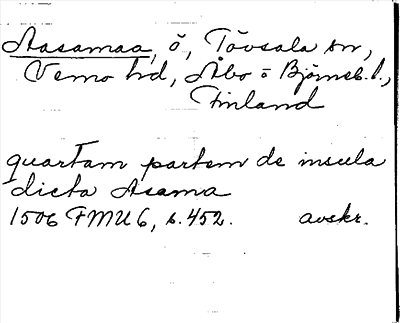 Aasamaa, ö, Tövsala sn,
Vemo hd, Åbo o Björneb. l.,
Finland
quartam partem de insula
dicta Asama
1506 FMU 6, s. 452. avskr.